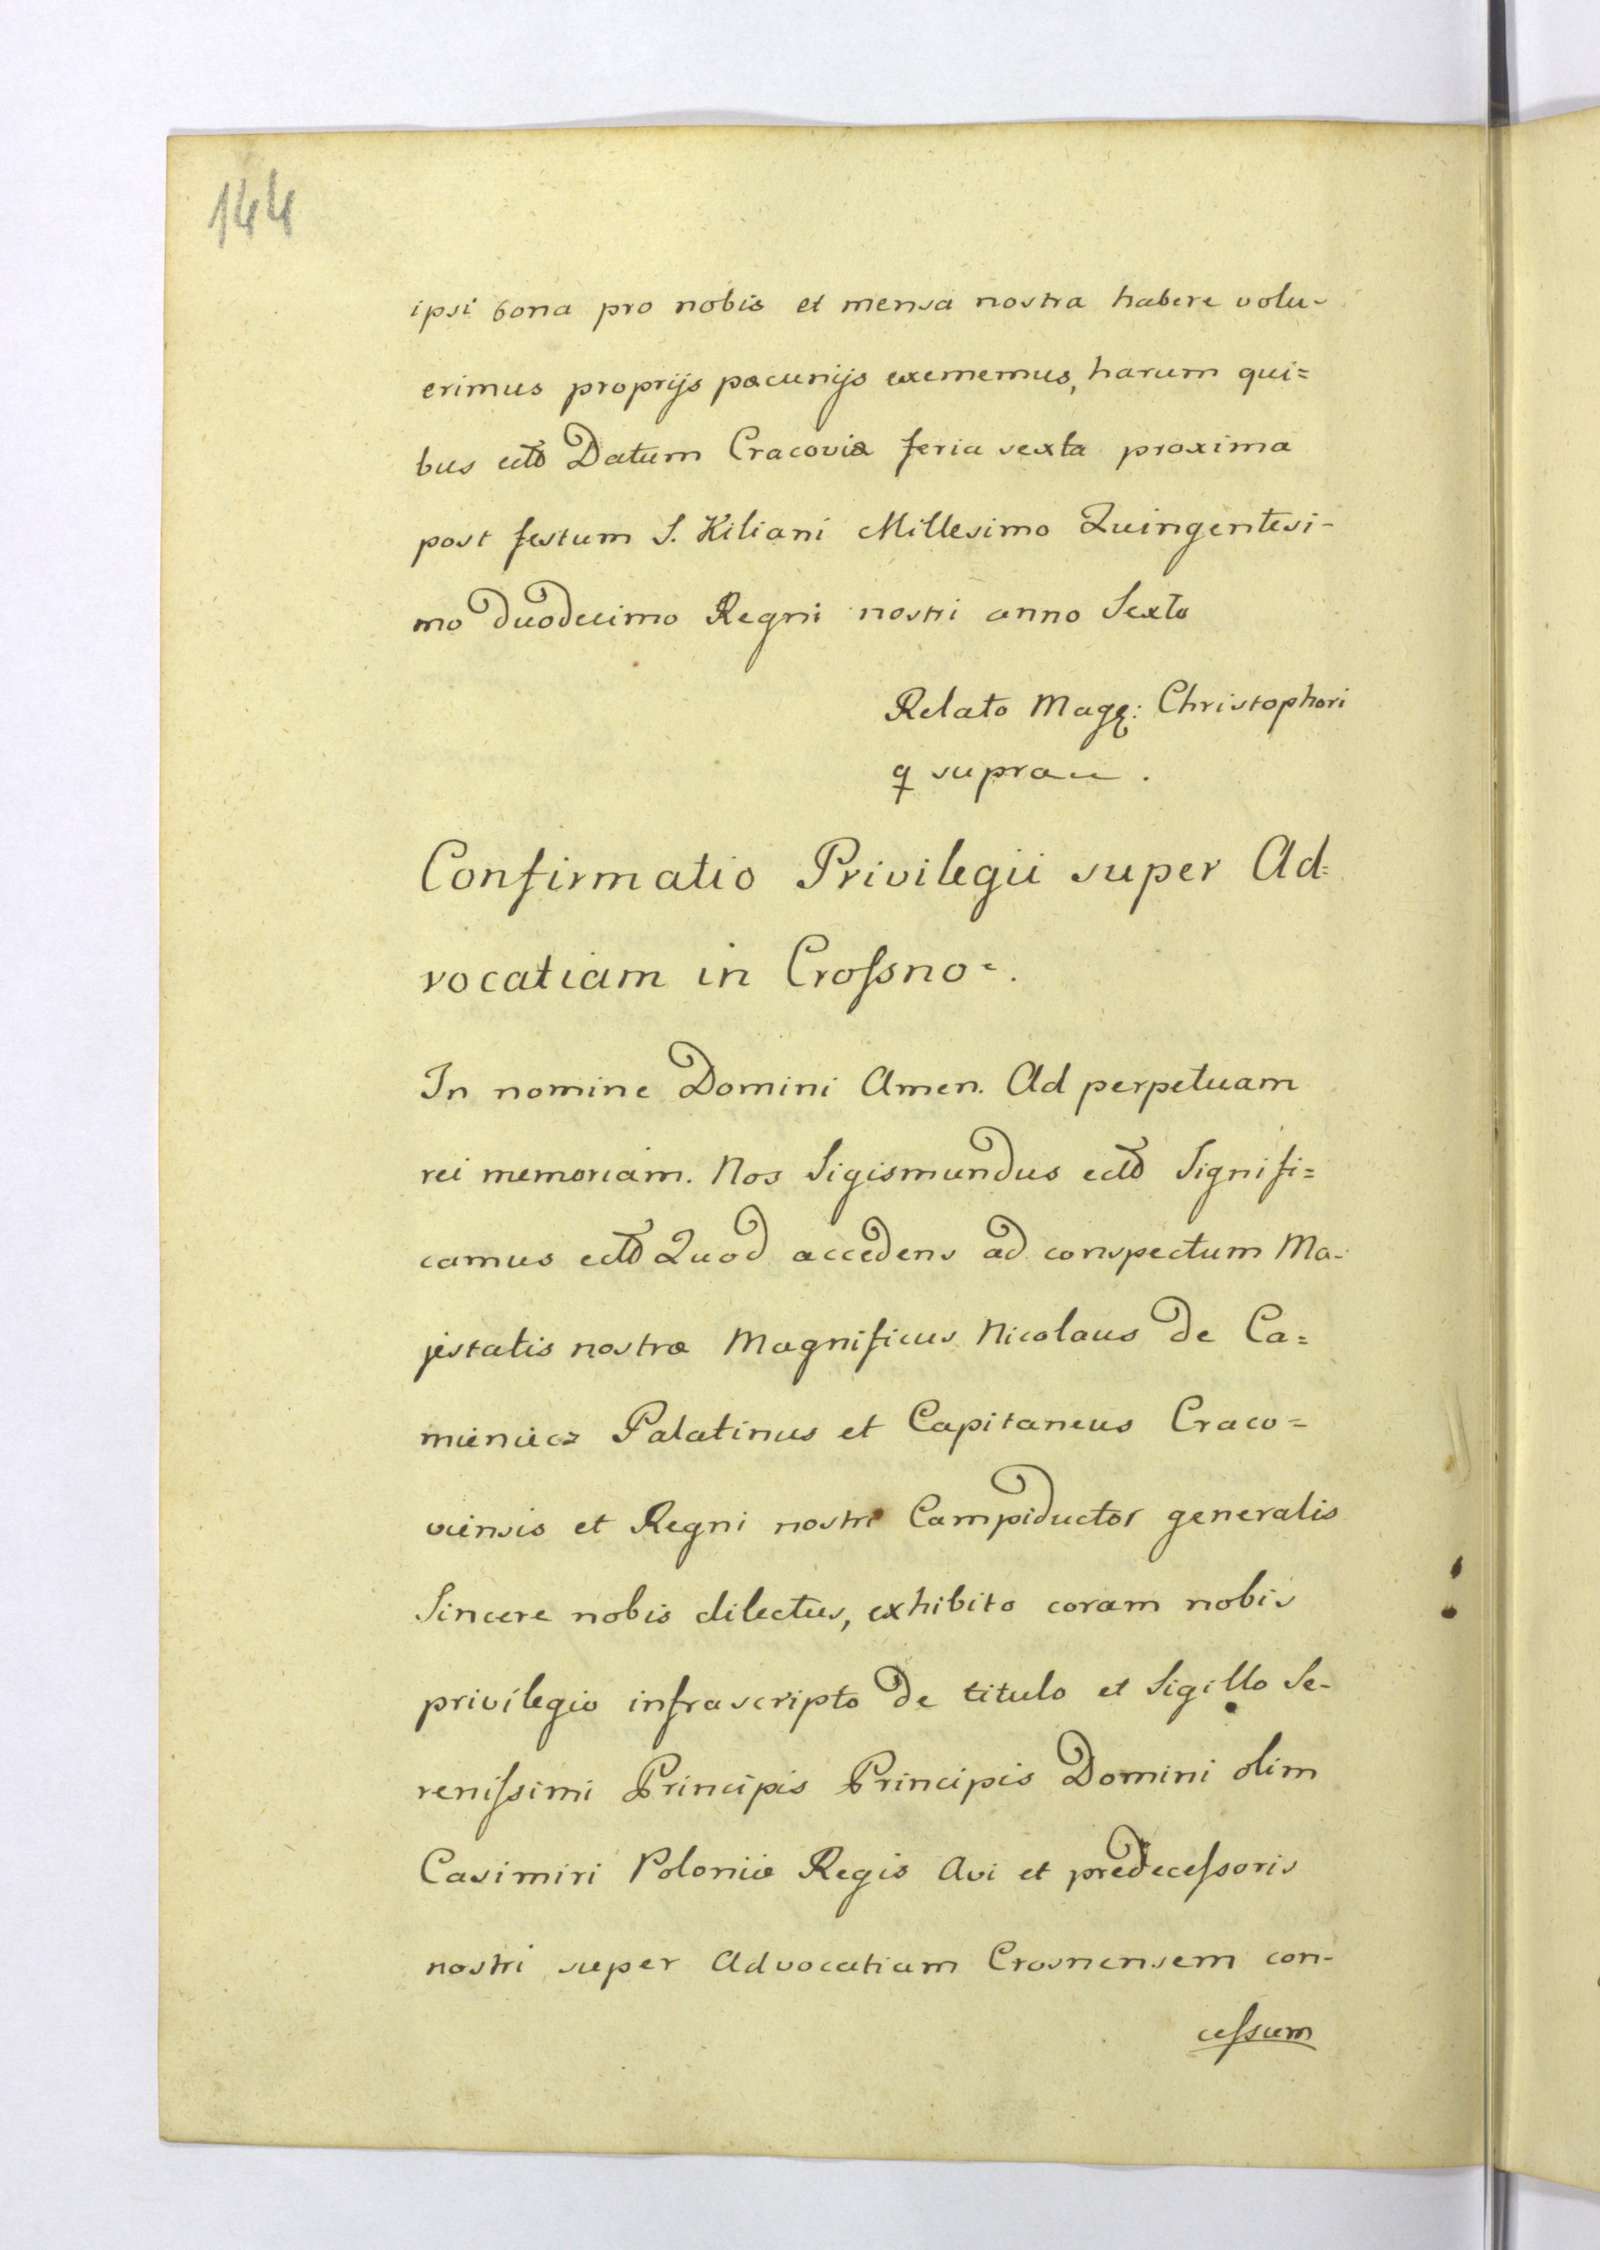 144
ipsi bona pro nobis et mensa nostra habere volu-
erimus proprijs pecunijs exememus, harum qui=
bus Datum Cracoviæ feria sexta proxima
post festum S. Kiliani Millesimo Quingentesi-
mo duodecimo Regni nostri anno Sexto
Relato Christophori
q supra
Confirmatio Privilegii super Ad=
vocatiam in Croſsno=.
In nomine Domini Amen. Ad perpetuam
rei memoriam. Nos Sigismundus Signifi=
camus Quod accedens ad conspectum Ma-
jestatis nostræ Magnificus Nicolaus de Ca=
mieniecz Palatinus et Capitaneus Craco=
viensis et Regni nostri Campiductor generalis
Sincere nobis dilectus, exhibito coram nobis
privilegio infrascripto de titulo et Sigillo Se-
reniſsimi Principis Principis Domini olim
Casimiri Poloniæ Regis Avi et predeceſsoris
nostri super Advocatiam Crosnensem con-
ceſsum